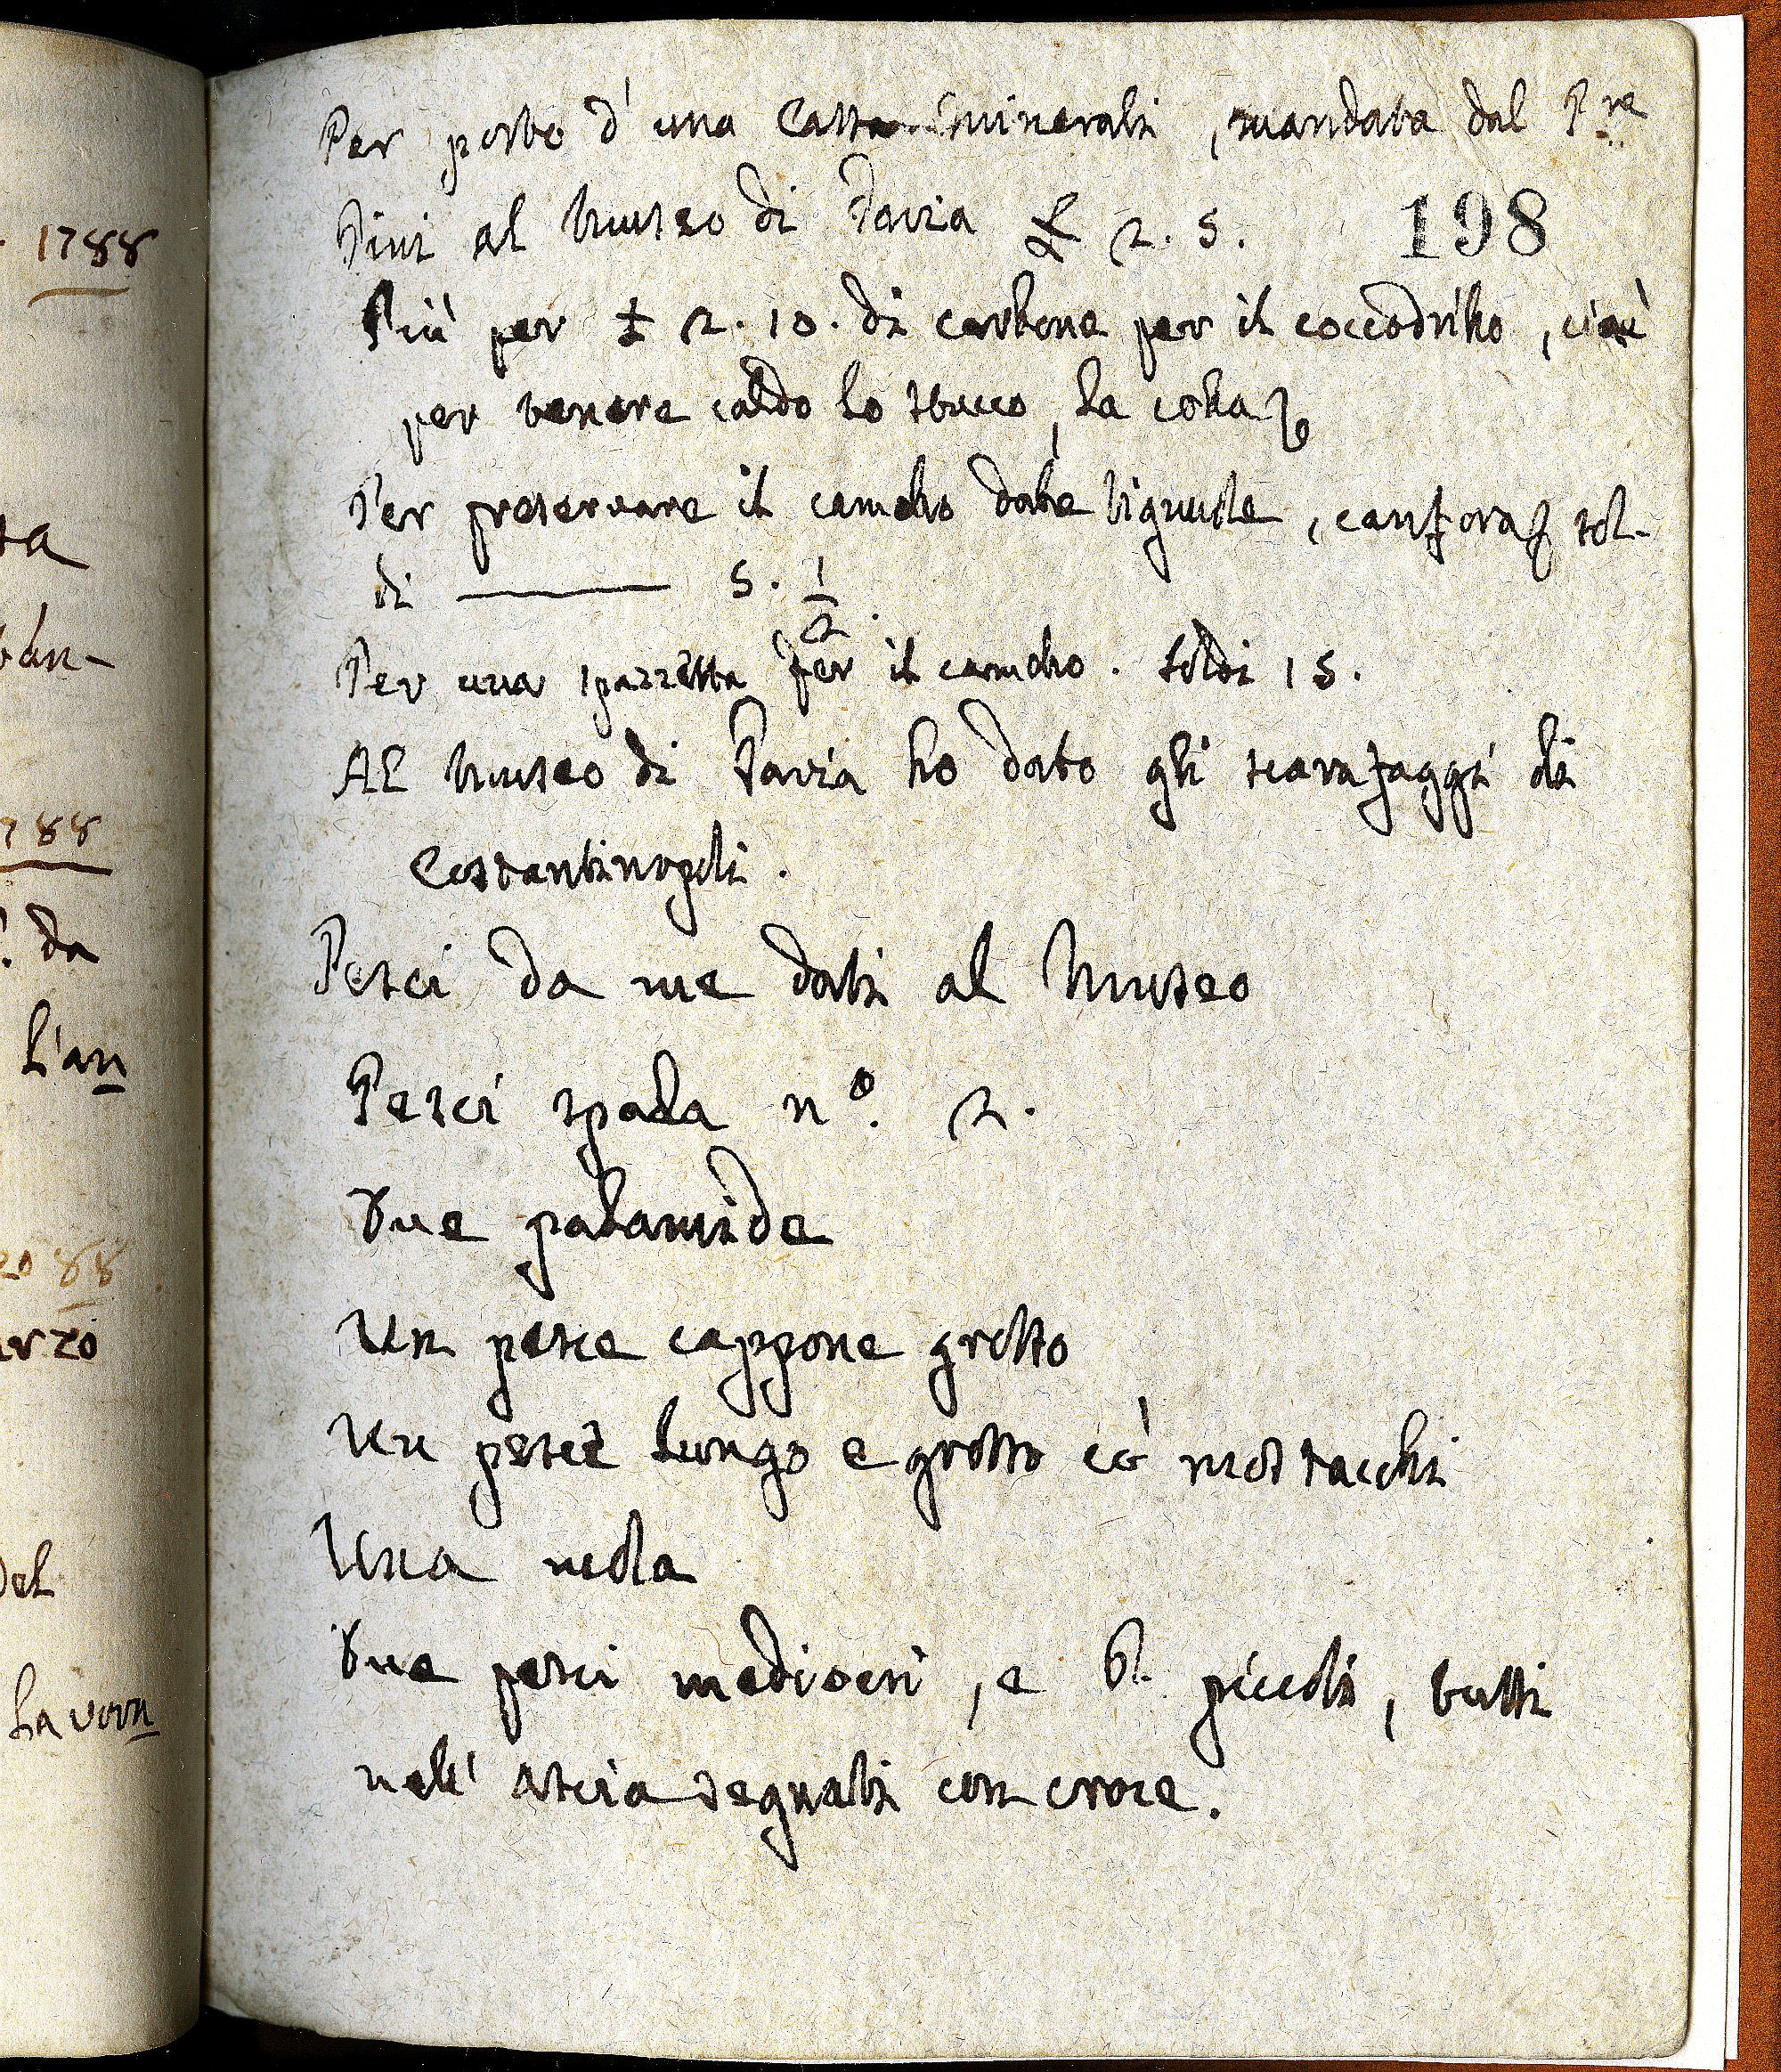 1788
ta
van-
788
da
l'an
88
arzo
del
ha vovu
Per porto d'una Cassa minerali, mandata dal P.re
Pini al Museo di Pavia £ 2. 5.
198
Più per £ 2. 10. di carbone per il coccodrillo, cioè
per tenere caldo lo stucco, la colla
Per preservare il camelo dalle tignuole, canfora sol-
di ——— 5. 1/2.
Per una spazzetta per il camelo. soldi 15.
Al Museo di Pavia ho dato gli scarafaggi di
Costantinopoli.
Pesci da me dati al Museo
Pesci spada n.º 2.
Due palamide
Un pesce cappone grosso
Un pesce lungo e grosso co' mostacchi
Una mola
Due pesci mediocri, e piccoli, tutti
nell' ascia segnati con croce.